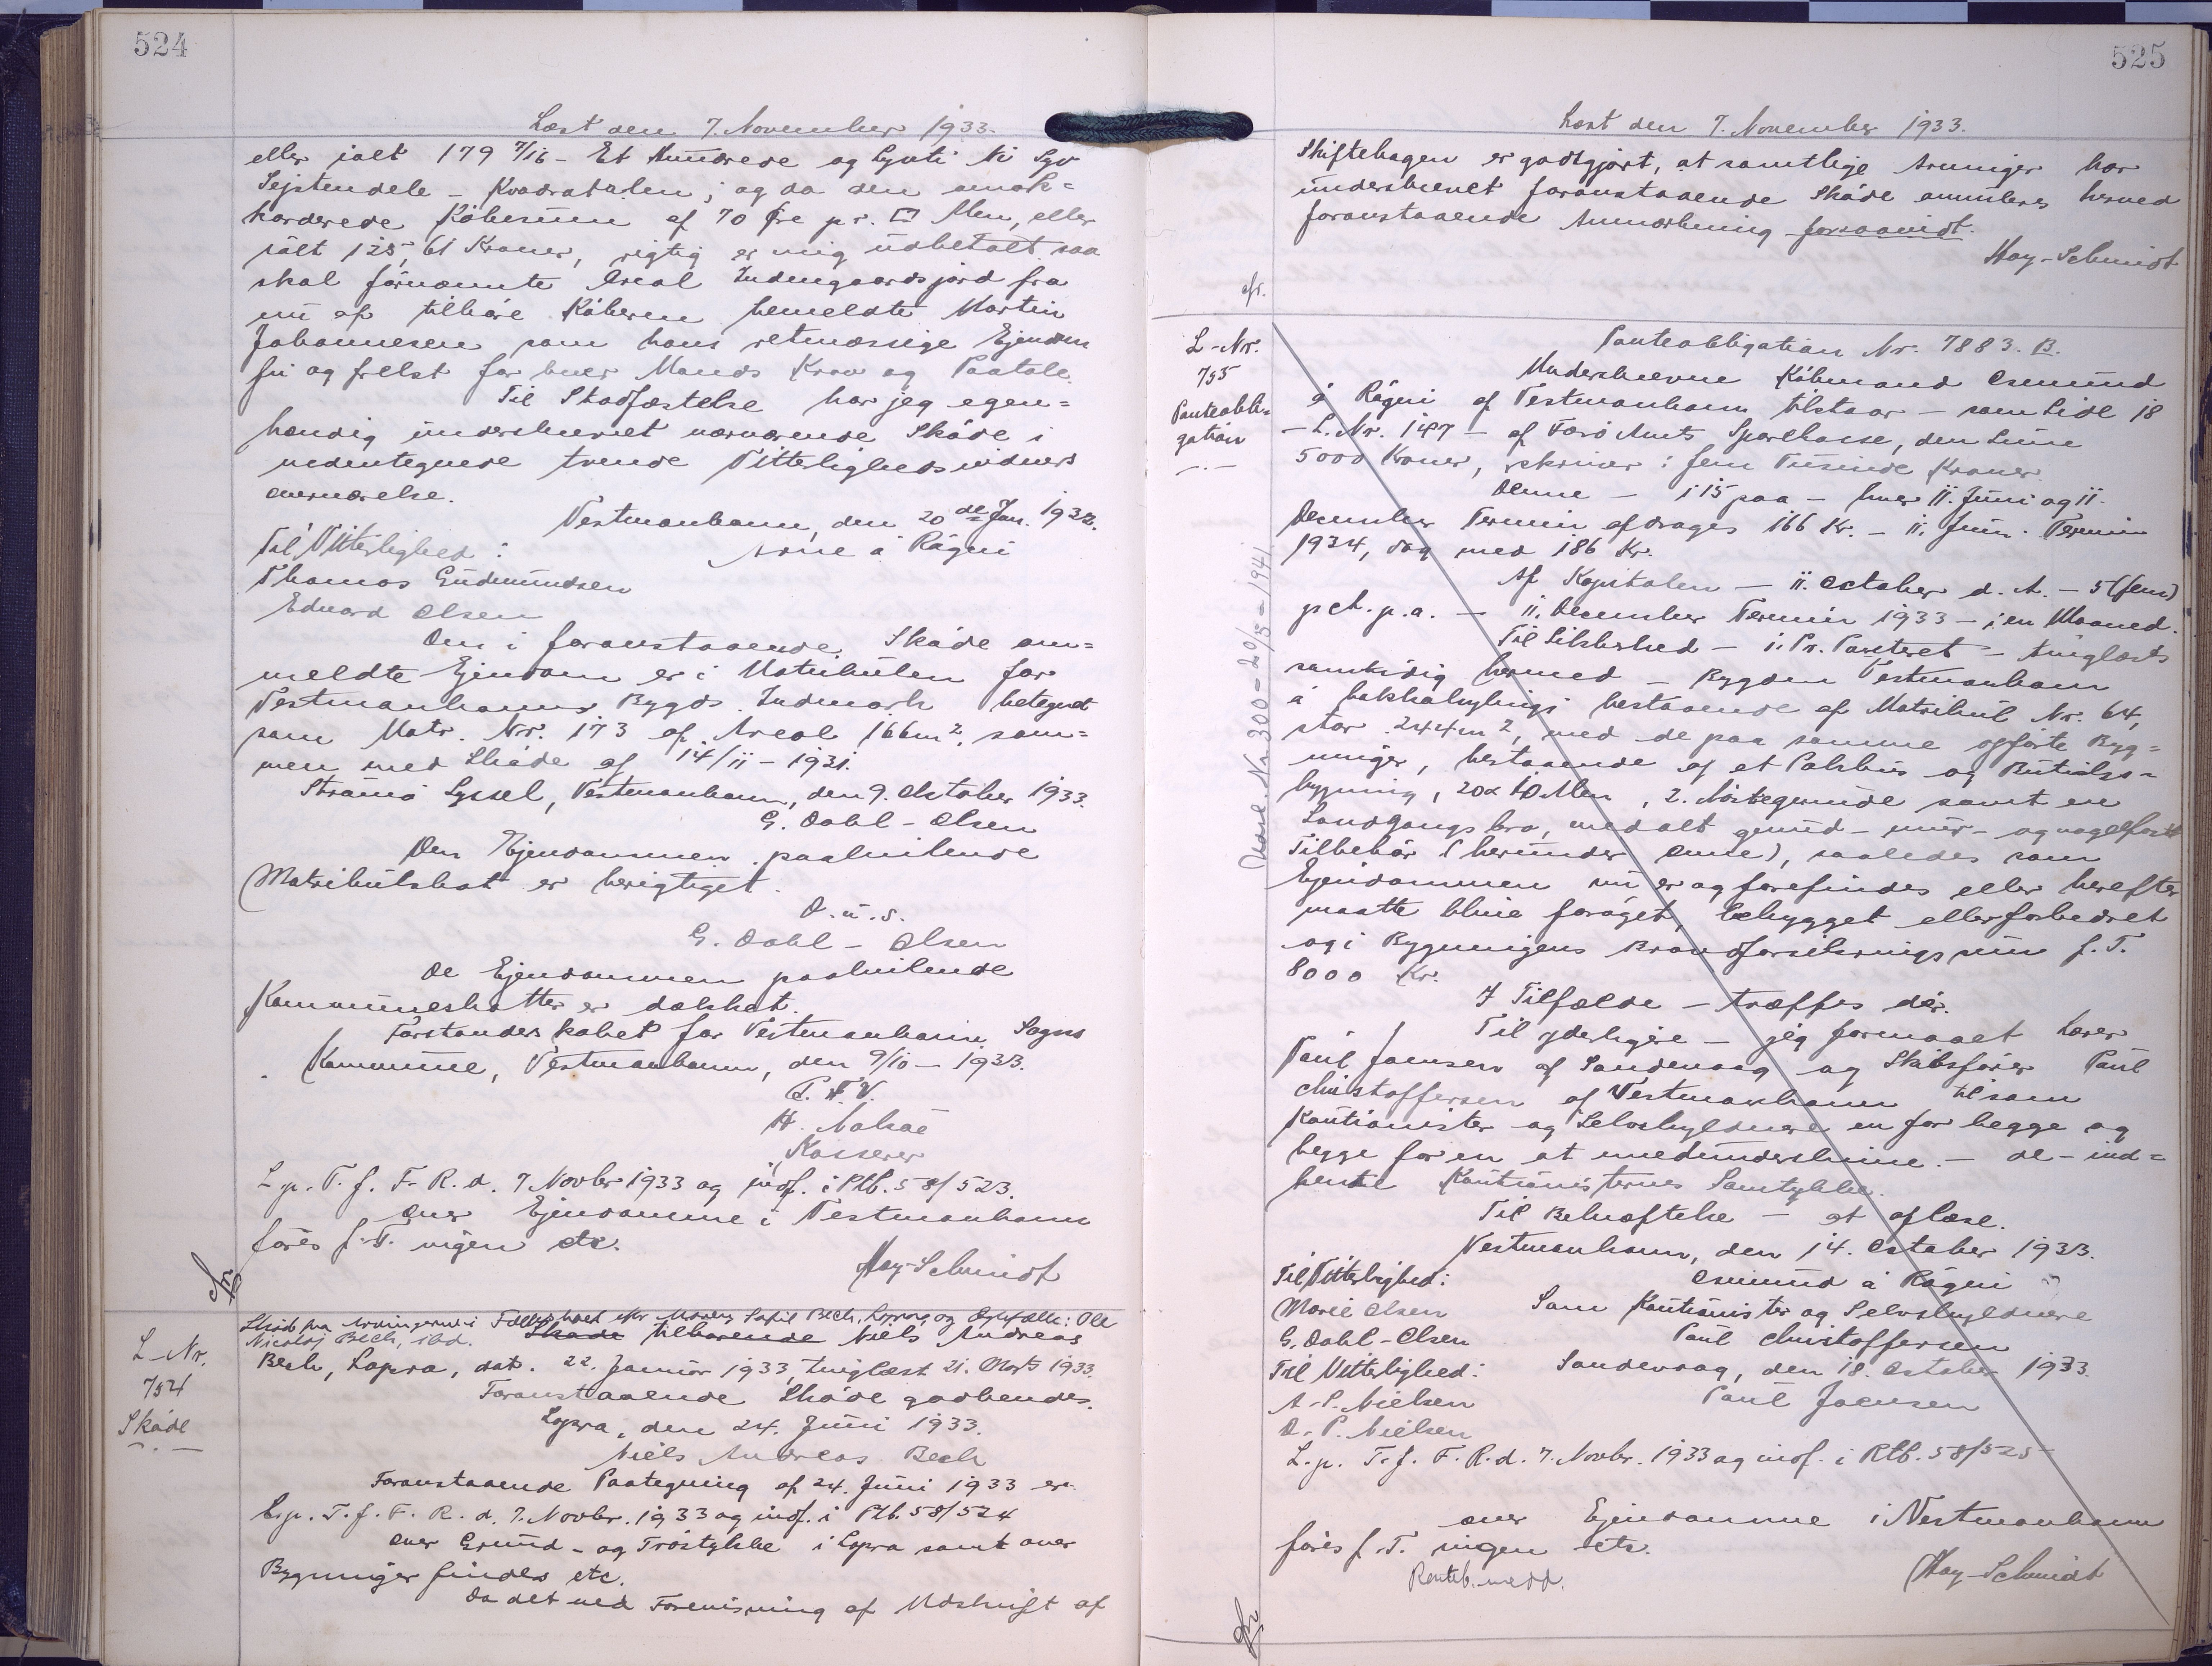 524
Læst den 7. November 1933.
eller ialt 179 7/16 - Et Hundrede og Sytti Ni Syv
Sejstendele - Kvadratalen; og da den omak=
korderede Købesum af 70 Øre pr. □ Alen, eller
ialt 125,61 Kroner, rigtig er mig udbetalt saa
skal førnævnte Areal Indengaardsjord fra
nu af tilhøre Køberen bemeldte Martin
Johannesen som hans retmæssige Ejendom
fri og frelst for hver Mands Krav og Paatale.
Til Stadfæstelse har jeg egen=
hændig underskrevet nærværende Skøde i
nedentegnede tvende Vitterlighedsvidners
overværelse.
Vestmanhavn, den 20de Jan. 1932.
Til Vitterlighed: á Rógvi
Thomas Gudmundsen
Edvard Olsen
Den i foranstaaende Skøde om=
meldte Ejendom er i Matrikulen for
Vestmanhavns Bygds Indmark betegnet
som Matr. Nr. 173 af Areal 166m², sam=
men med Skøde af 14/11 - 1931.
Strømø Syssel, Vestmanhavn, den 9. Oktober 1933.
G. Dahl-Olsen
Den Ejendommen paahvilende
Matrikulskat er berigtiget.
D.u.s.
G. Dahl-Olsen
De Ejendommen paahvilende
Kommuneskatter er dækket.
Forstanderskabet for Vestmanhavn Sogns
Kommune, Vestmanhavn, den 9/10 - 1933.
P. F. V.
H. Nolsøe
Kasserer
L. p. T. f. F. R. d. 7 Novbr 1933 og indf. i Ptb. 58/523.
over Ejendomme i Vestmanhavn
føres f. T. ingen etc.
Hay-Schmidt
L-Nr.
754
Skøde
Skøde fra Arvingerne i Fællesboet efter Maren Sofie Bech, Lopra, og Ægtefælle: Ole
Nicolaj Bech, ibd. Skøde tilhørende Niels Andreas
Bech, Lopra, dat. 22. Januar 1933, tinglæst 21. Marts 1933.
Foranstaaende Skøde godkendes.
Lopra, den 24. Juni 1933.
Niels Andreas Bech
Foranstaaende Paategning af 24. Juni 1933 er
L. p. T. f. F. R. d. 7. Novbr. 1933 og indf. i Ptb. 58/524
over Grund- og Trøstykke i Lopra samt over
Bygninger findes etc.
Da det ved Forevisning af Udskrift af
525
Læst den 7. November 1933.
Skiftebogen er godtgjort, at samtlige Arvinger har
underskrevet foranstaaende Skøde annulleres herved
foranstaaende Anmærkning forsaavidt.
Hay-Schmidt
afr.
L-Nr.
755
Panteobli=
gation
Panteobligation Nr. 7883. B.
Underskrevne Købmand Osmund
á Rógvi af Vestmanhavn tilstaar - som Side 18
- L. Nr. 147 - af Færø Amts Sparekasse, den Sum
5000 Kroner, skriver: fem Tusinde Kroner
Denne - i 15 paa - hver 11. Juni og 11.
December Termin afdrages 166 Kr. - 11. Juni Termin
1934, dog med 186 Kr.
Af Kapitalen - 11. October d. A. - 5 (fem)
pct. p.a. - 11. December Termin 1933 - i en Maaned.
Til Sikkerhed - i Pr. Panteret - tinglæst
samtidig hermed - Bygden Vestmanhavn
á bakka bestaaende af Matrikul Nr. 64,
stor 244m², med de paa samme opførte Byg=
ninger, bestaaende af et Pakhus og Butiks=
bygning, 20 x 10 Alen, 2. Nøstegrunde samt en
Landgangsbro, med alt grund- mur- og nagelfast
Tilbehør (herunder Ovne), saaledes som
Ejendommen nu er og forefindes eller herefter
maatte blive forøget, bebygget eller forbedret
og i Bygningens Brandforsikringssum f. T.
8000 Kr.
I Tilfælde - træffes dér.
Til yderligere - jeg formaaet Lærer
Paul Joensen af Sandevaag og Skibsfører Paul
Christoffersen af Vestmanhavn til som
Kautionister og Selvskyldnere en for begge og
begge for en at medunderskrive. - de - ind=
hente Kautionisternes Samtykke.
Til Bekræftelse - at aflæse.
Vestmanhavn, den 14. October 1933.
Til Vitterlighed: Osmund á Rógvi
Marie Olsen Som Kautionister og Selvskyldnere
G. Dahl-Olsen Paul Christoffersen
Til Vitterlighed: Sandevaag, den 18. October 1933.
A. P. Nielsen Paul Joensen
D. P. Nielsen
L. p. T. f. F. R. d. 7. Novbr. 1933 og indf. i Ptb. 58/525
over Ejendomme i Vestmanhavn
føres f. T. ingen etc.
Hay-Schmidt
Nr. 300 - 20/5 - 1941